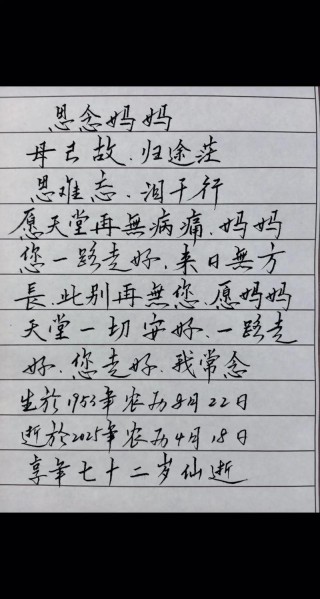 思念妈妈
母去故.归途茫
恩难忘.泪千行
愿天堂再無病痛.妈妈
您一路走好.来日無方
長.此别再無您.愿妈妈
天堂一切安好.一路走
好.您走好.我常念
生於1953年农历8月22日
逝於2025年农历4月18日
享年七十二岁仙逝